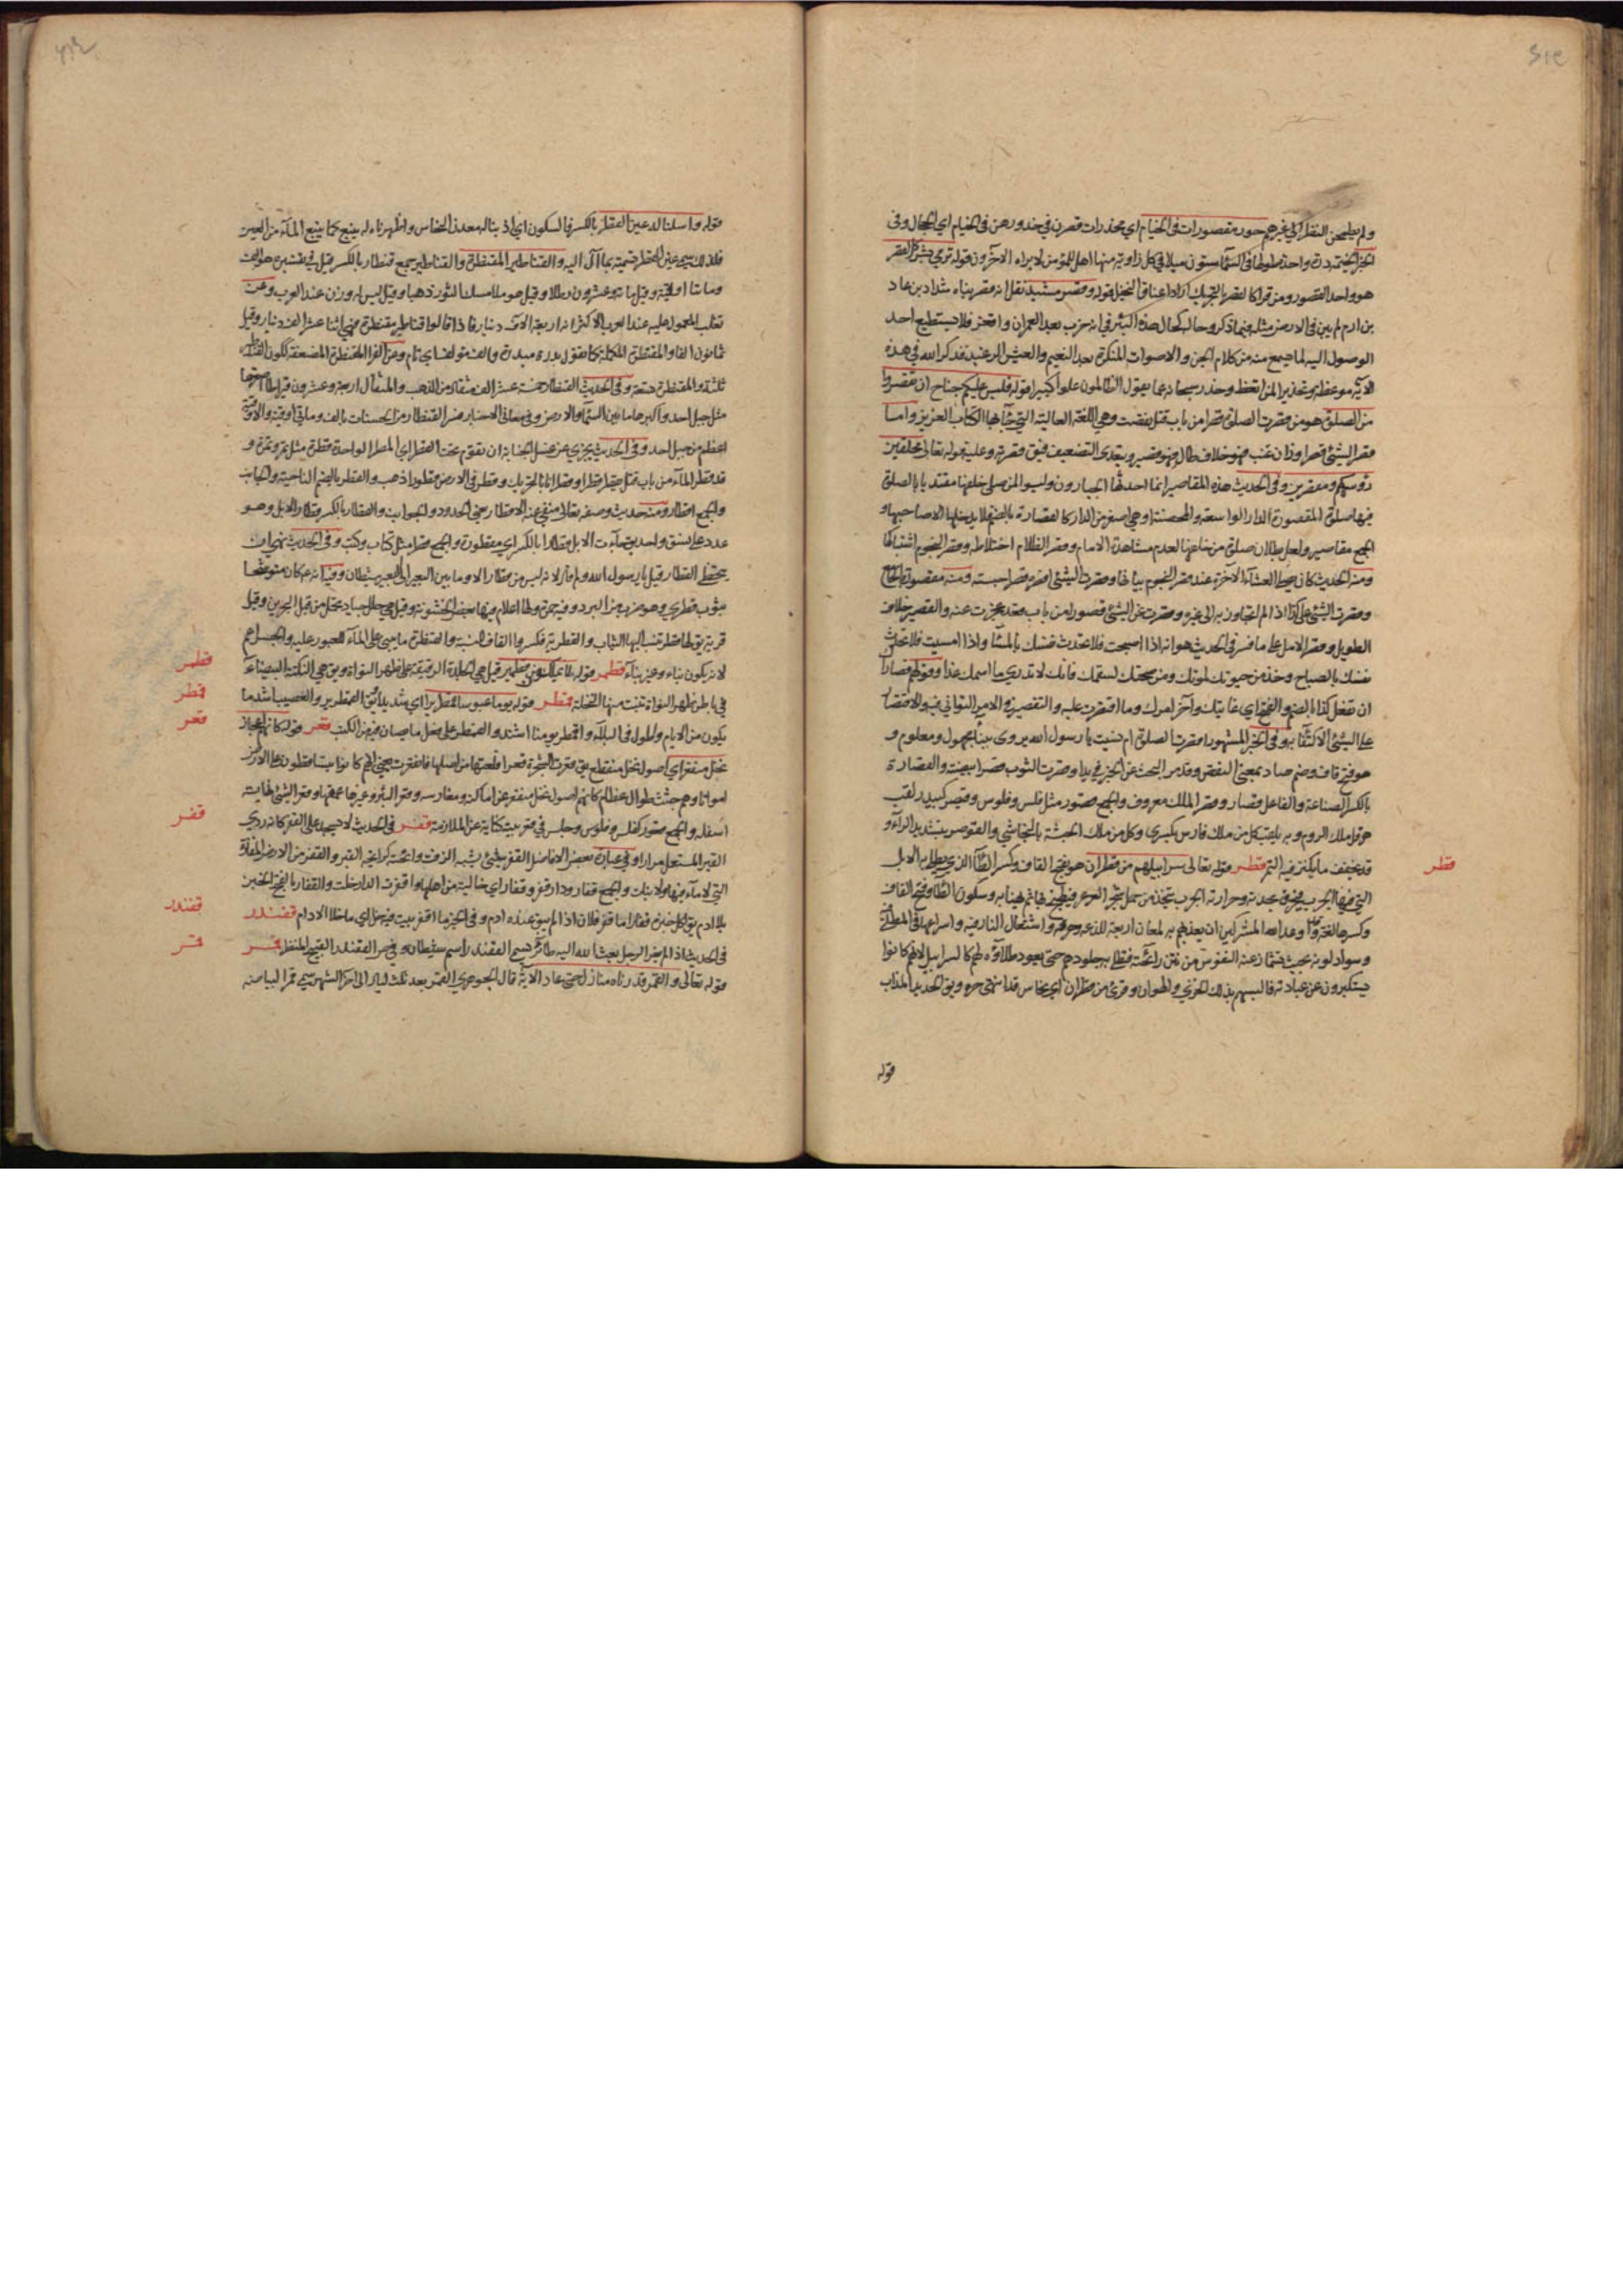 ولم يطمحن النظر الى غيرهم حور مقصورات في الخيام اي مخدرات قصرن في خدورهن في الخيام اي الحجال وفي
الخبر الخيمة درة واحدة طولها في السماء ستون ميلا في كل زاوية منها اهل للمؤمن لا يراه الآخرون قوله ترمي بشرر كالقصر
هو واحد القصور ومن قرأ كالقصر بالتحريك اراد اعناق النخيل قوله وقصر مشيد نقل انه قصر بناه شداد بن عاد
بن ارم لم يبن في الارض مثله فيما ذكر وحاله كحال هذه البئر في انه خرب بعد العمران واقفر فلا يستطيع احد
الوصول اليه لما يسمع منه من كلام الجن والاصوات المنكرة بعد النعيم والعيش الرغيد فذكر الله في هذه
الآية موعظة وتحذير المن اتعظ وحذر سبحانه عما يقول الظالمون علوا كبيرا قوله فليس عليكم جناح ان تقصروا
من الصلوة هو من قصرت الصلوة قصرا من باب قتل نقصت وهي اللغة العالية التي جاء بها الكتاب العزيز واما
قصر الشيئ قصرا وزان عنب فهو خلاف طال فهو قصير ويتعدى التضعيف فيق قصرته وعليه قوله تعالى محلقين
رؤسكم ومقصرين وفي الحديث هذه المقاصير انما احدثها الجبارون وليس لمن صلى خلفها مقتديا بالصلوة
فيها صلوة المقصورة الدار الواسعة والمحصنة او هي اصغر من الدار كالقصارة بالضم لا يدخلها الا صاحبها و
الجمع مقاصير ولعل بطلان صلوة من خلفها لعدم مشاهدة الامام وقصر الظلام اختلاطه وقصر النجوم اشتباكها
ومنه الحديث كان يصلي العشاء الآخرة عند قصر النجوم بياضا وقصرت الشيئ اقصره قصرا حبسته ومنه مقصورة الجامع
وقصرت الشيئ على كذا اذا لم تتجاوز به الى غيره وقصرت عن الشيئ قصورا من باب قعد عجزت عنه والقصير خلاف
الطويل وقصر الامل على ما فسر في الحديث هو انه اذا اصبحت فلا تحدث نفسك بالمساء واذا امسيت فلا تحدث
نفسك بالصباح وخذ من حيوتك لموتك ومن صحتك لسقمك فانك لا تدري ما اسمك غدا وقولهم قصارا
ان تفعل كذا بالضم والفتح اي غايتك وآخر امرك وما اقتصرت عليه والتقصير في الامر التواني فيه والاقتصار
على الشيئ الاكتفاء به وفي الخبر المشهور اقصرت الصلوة ام نسيت يا رسول الله يروى ببناء مجهول ومعلوم و
هو فتح قاف وضم صاد بمعنى النقص وقد مر البحث عن الخبر في يدا وقصرت الثوب قصرا بيضته والقصارة
بالكسر الصناعة والفاعل قصار وقصر الملك معروف والجمع قصور مثل فلس وفلوس وقيصر كبيدر لقب
هرقل ملك الروم وبه يلقب كل من ملك فارس بكسرى وكل من ملك الحبشة بالنجاشي والقوصر بتشديد الراء و
قد يخفف ما يكنز فيه التمر قطر قوله تعالى سرابيلهم من قطران هو بفتح القاف وكسر الطاء الذي يطلى به الابل
وكسرها لغة
وسواد لونه بحيث تشمأز عنه النفوس من نتن رائحته فتطلى به جلودهم حتى يعود طلاؤه لهم كالسرابيل لانهم كانوا
يستكبرون عن عبادته فالبسهم بذلك الخزي والهوان وقرئ من قطران اي نحاس قد انتهى حره ويق الحديد المذاب
قوله
قطر
قوله واسلنا له عين القطر بالكسر فالسكون اي اذبنا له معدن النحاس واظهرناه له ينبع كما ينبع الماء من العين
فلذلك سمي عين القطر تسمية بما آل اليه والقناطير المقنطرة والقناطير جمع قنطار بالكسر قيل في تفسيره هو الف
ومائتا اوقية وقيل مائة وعشرون رطلا وقيل هو ملأ مسك الثور ذهبا وقيل ليس له وزن عند العرب وعن
ثعلب المعمول عليه عند العرب الاكثر انه اربعة الآف دينار فاذا قالوا قناطير مقنطرة فهي اثنا عشر الف دينار وقيل
ثمانون الفا والمقنطرة المكملة كما تقول بدرة مبدرة والف مؤلف اي تام وعن الفرا المقنطرة المضعفة ككون القناطير
ثلثة والمقنطرة تسعة وفي الحديث القنطار خمسة عشر الف مثقال من الذهب والمثقال اربعة وعشرون قيراطا اصغرها
مثل جبل احد واكبرها ما بين السماء والارض وفي معاني الاخبار فسر القنطار من الحسنات بالف ومائتي اوقية والاوقية
اعظم من جبل احد وفي الحديث يجزي عن غسل الجنابة ان تقوم تحت القطر اي المطر الواحدة قطرة مثل تمر وتمرة و
قد قطر الماء من باب قتل قطرا وقطرانا بالتحريك وقطر في الارض قطورا ذهب والقطر بالضم الناحية والجانب
والجمع اقطار ومنه حديث وصفه تعالى منفي عنه الاقطار يعني الحدود والجوانب والقطار بالكسر قطار الابل وهو
عدد على نسق واحد يق جاءت الابل قطارا بالكسر اي مقطورة والجمع قطر مثل كتاب وكتب وفي الحديث نهى ان
يتخطى القطار قيل يا رسول الله ولم قال لانه ليس من قطار الا وما بين البعير الى البعير شيطان وفيه انه ع كان متوشحا
بثوب قطري وهو ضرب من البرد وفيه حمرة ولها اعلام فيها بعض الخشونة وقيل هي حلل جياد تحمل من قبل البحرين وقيل
قرية يق لها قطر تنسب اليها الثياب والقطرية فكسروا القاف للنسبة والقنطرة ما يبنى على الماء للعبور عليه والجسر اعم
لانه يكون بناء وغير بناء قطمر قوله ما يملكون من قطمير قيل هي الجلدة الرقيقة على ظهر النواة ويق هي النكتة البيضاء
في باطن ظهر النواة تنبت منها النخلة قمطر قوله يوما عبوسا قمطريرا اي شديدا يق القمطرير والعصيب اشد ما
يكون من الايام واطول في البلاء واقمطر يومنا اشتد والقمطر على فعل ما يصان فيه من الكتب قعر قوله كانهم اعجاز
نخل منقعر اي اصول نخل منقطع يق قعرت الشجرة قعرا قلعتها من اصلها فانقعرت يعني انهم كانوا يتساقطون على الارض
امواتا وهم جثث طوال عظام كانهم اصول نخل منقعر عن اماكنه ومغارسه وقعر البئر وغيرها عمقها وقعر الشيئ نهاية
اسفله والجمع قعور كفلس وفلوس وجلس في قعر بيته كناية عن الملازمة قفر في الحديث لا تسجد على القفر كانه ردي
القير المستعمل مرارا وفي عبارة بعض الافاضل القفر شيئ يشبه الزفت ورائحته كرائحة القير والقفر من الارض المفازة
التي لا ماء فيها ولا نبات والجمع قفار ودار قفر وقفار اي خالية من اهلها واقفرت الدار خلت والقفار بالفتح الخبز
بلا ادم يق اكل خبزه قفارا ما قفر فلان اذا لم يبق عنده ادم وفي الخبر ما اقفر بيت فيه خل اي ما خلا الادام قفندر
في الحديث اذا لم يغر الرجل بعث الله اليه طائرا يسمى القفندر اسم شيطان وفي ص القفندر القبيح المنظر قمر
قوله تعالى والقمر قدرناه منازل حتى عاد الآية قال الجوهري القمر بعد ثلث ليال الى آخر الشهر سمي قمرا لبياضه
قطمر
قمطر
قعر
قفر
قفندر
قمر